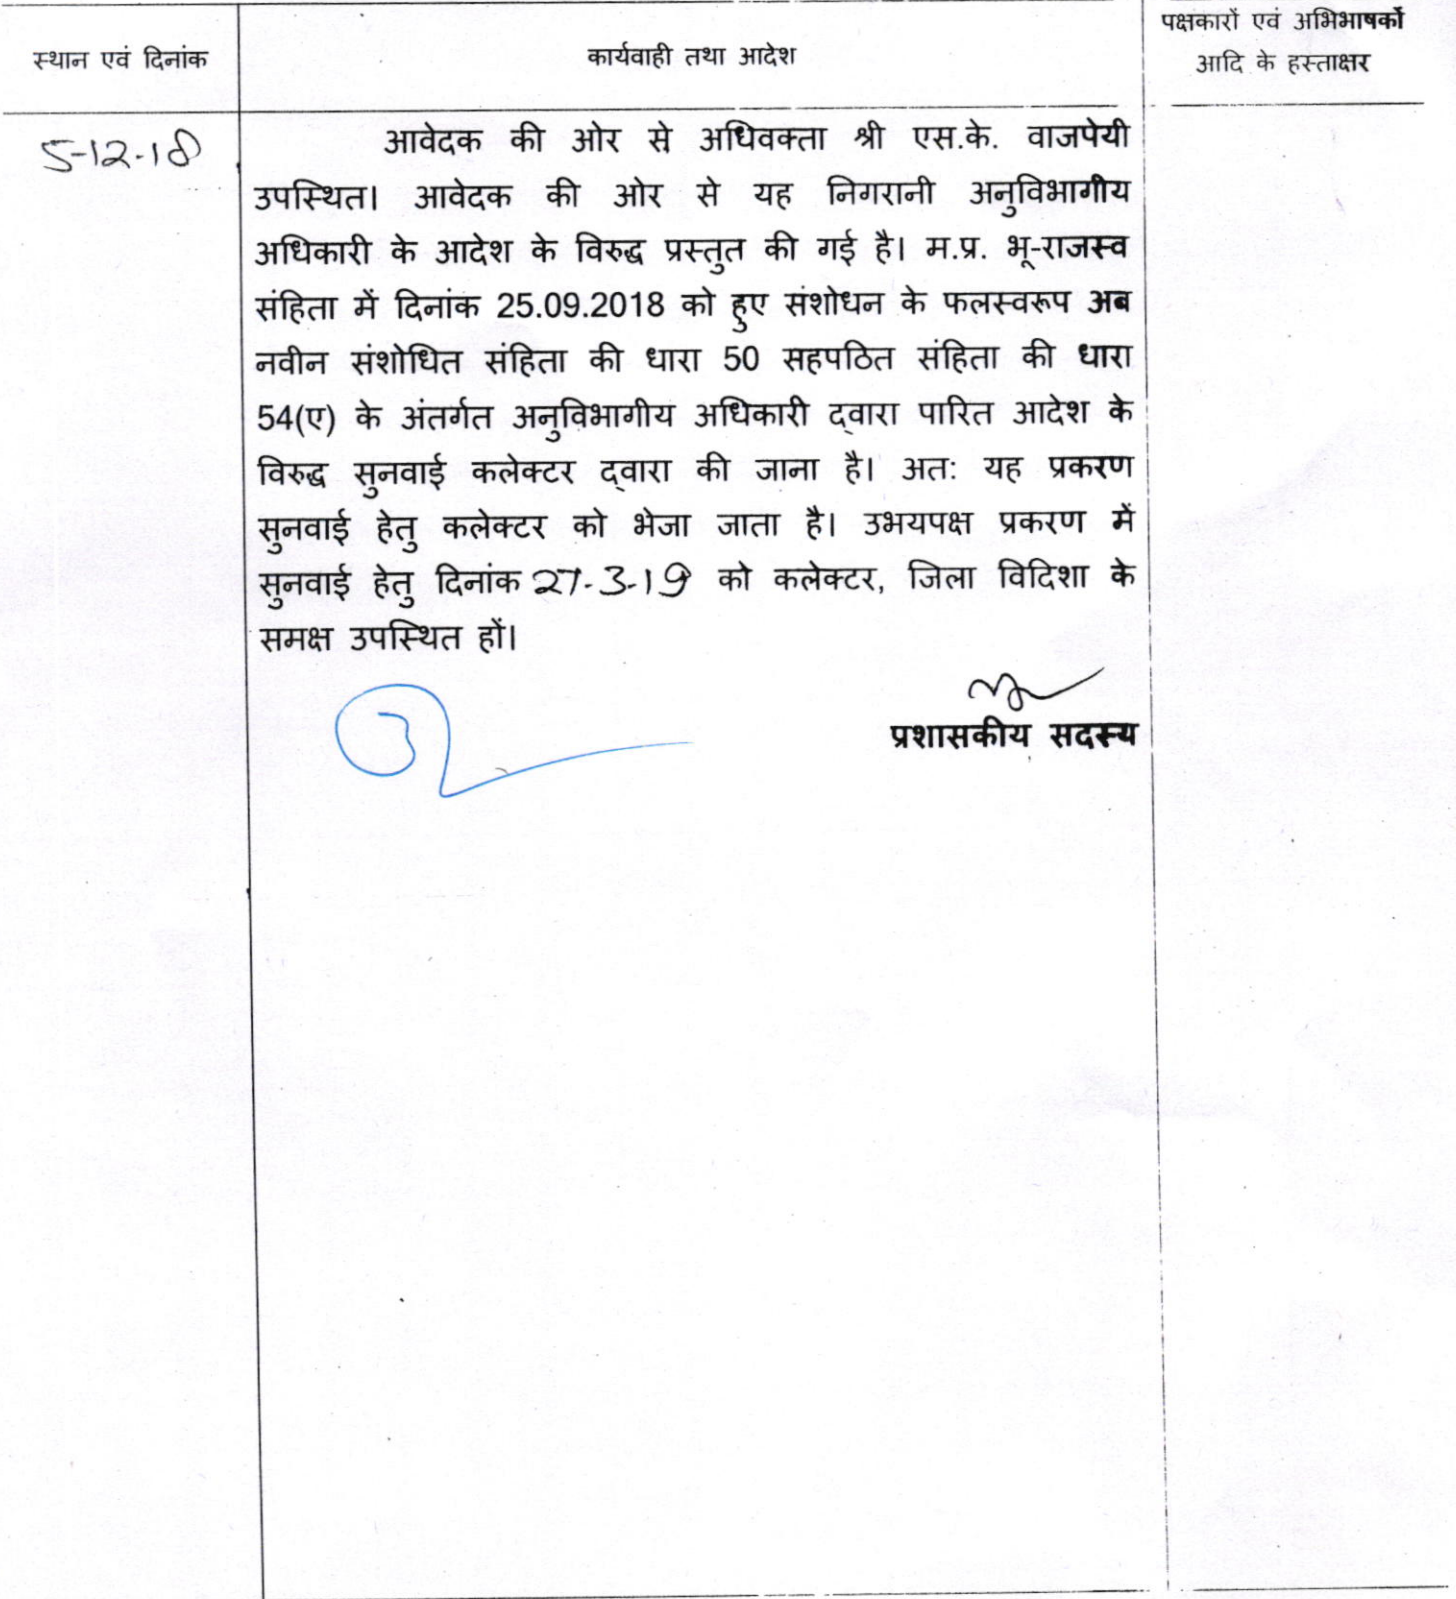 स्थान एवं दिनांक
कार्यवाही तथा आदेश
पक्षकारों एवं अभिभाषकों
आदि के हस्ताक्षर
5-12-18
आवेदक की ओर से अधिवक्ता श्री एस.के. वाजपेयी
उपस्थित। आवेदक की ओर से यह निगरानी अनुविभागीय
अधिकारी के आदेश के विरुद्ध प्रस्तुत की गई है। म.प्र. भू-राजस्व
संहिता में दिनांक 25.09.2018 को हुए संशोधन के फलस्वरूप अब
नवीन संशोधित संहिता की धारा 50 सहपठित संहिता की धारा
54(ए) के अंतर्गत अनुविभागीय अधिकारी द्वारा पारित आदेश के
विरुद्ध सुनवाई कलेक्टर द्वारा की जाना है। अतः यह प्रकरण
सुनवाई हेतु कलेक्टर को भेजा जाता है। उभयपक्ष प्रकरण में
सुनवाई हेतु दिनांक 27-3-19 को कलेक्टर, जिला विदिशा के
समक्ष उपस्थित हों।
प्रशासकीय सदस्य